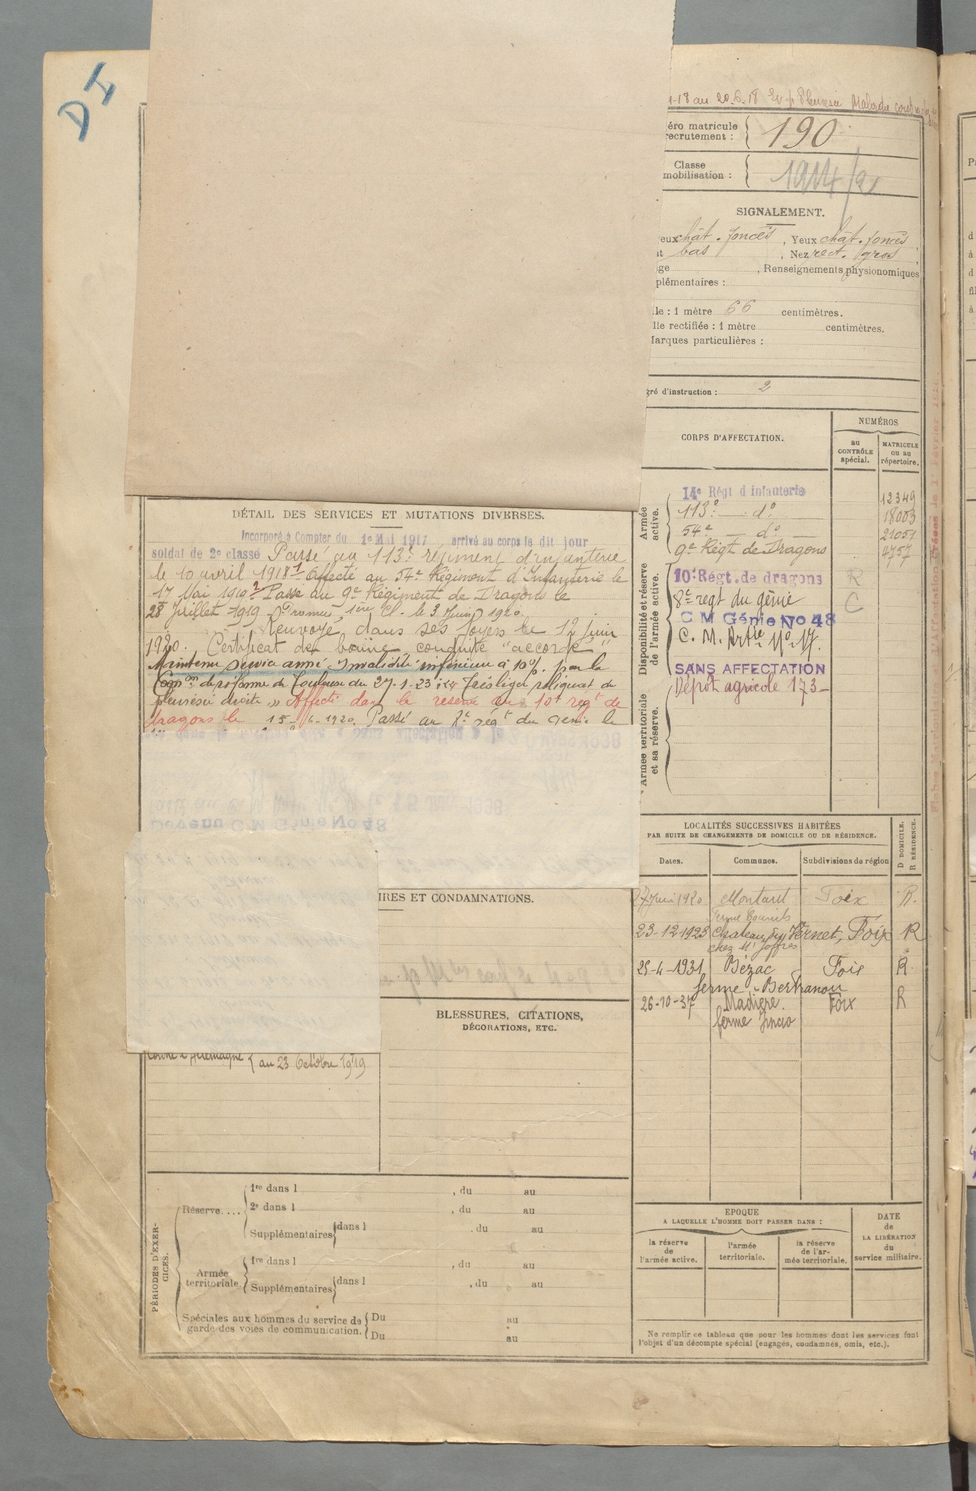 DI
1-18 au 20.6.18
éro matricule
ecrutement : 190
Classe
mobilisation : 1914/21
SIGNALEMENT.
eux chât. foncés, Yeux chât. foncés
t bas, Nez rect. gros
ge , Renseignements physionomiques
plémentaires :
lle : 1 mètre 66 centimètres.
lle rectifiée : 1 mètre centimètres.
Marques particulières :
gré d'instruction : 2
CORPS D'AFFECTATION.
NUMÉROS
au CONTRÔLE spécial.
MATRICULE ou au répertoire.
Armée active.
14e Régt d infanterie 12349
113e d° 18003
54e d° 21051
9e Régt de Dragons 4757
Disponibilité et réserve de l'armée active.
10e Régt. de dragons R
8e regt du génie C
C M Génie No 48
C. M. Artie No 17.
SANS AFFECTATION
Dépot agricole 173
Armée territoriale et sa réserve.
DÉTAIL DES SERVICES ET MUTATIONS DIVERSES.
Incorporé à Compter du 1e Mai 1917, arrivé au corps le dit jour
soldat de 2e classé Passé au 113e régiment d'infanterie
le 10 avril 1918 Affecté au 54e Régiment d'Infanterie le
17 Mai 1919 Passé au 9e Régiment de Dragons le
28 Juillet 1919 Promu 1ère Cl. le 3 Juin 1920
Renvoyé dans ses foyers le 12 Juin
1920. Certificat de bonne conduite "accordé
Maintenu service armé, Invalidité inférieure à 10%. par la
Con de réforme de Toulouse du 27-1-23 reliquat de
pleurésie droite » Affecté dans la réserve au 10e régt de
dragons le 15 1920. Passé au 8e régt du génie le
Devenu C M Génie No 48
LOCALITÉS SUCCESSIVES HABITÉES
PAR SUITE DE CHANGEMENTS DE DOMICILE OU DE RÉSIDENCE.
D DOMICILE. R RÉSIDENCE.
Dates. Communes. Subdivisions de région
27 Juin 1920 Montaut Foix R.
23-12-1923 Chateau du Vernet, Foix R
chez Mr Joffrès
25-4-1931 Bezac Foix R.
ferme Bertranou
26-10-37 Madière Foix R
ferme
IRES ET CONDAMNATIONS.
BLESSURES, CITATIONS,
DÉCORATIONS, ETC.
au 23 Octobre 1919
PÉRIODES D'EXERCICES.
Réserve....
1re dans l , du au
2e dans l , du au
Supplémentaires dans l , du au
Armée territoriale.
1re dans l , du au
Supplémentaires dans l , du au
Spéciales aux hommes du service de
garde des voies de communication.
Du au
Du au
ÉPOQUE
A LAQUELLE L'HOMME DOIT PASSER DANS :
la réserve de l'armée active.
l'armée territoriale.
la réserve de l'armée territoriale.
DATE
de
LA LIBÉRATION
du
service militaire.
Ne remplir ce tableau que pour les hommes dont les services font
l'objet d'un décompte spécial (engagés, condamnés, omis, etc.).